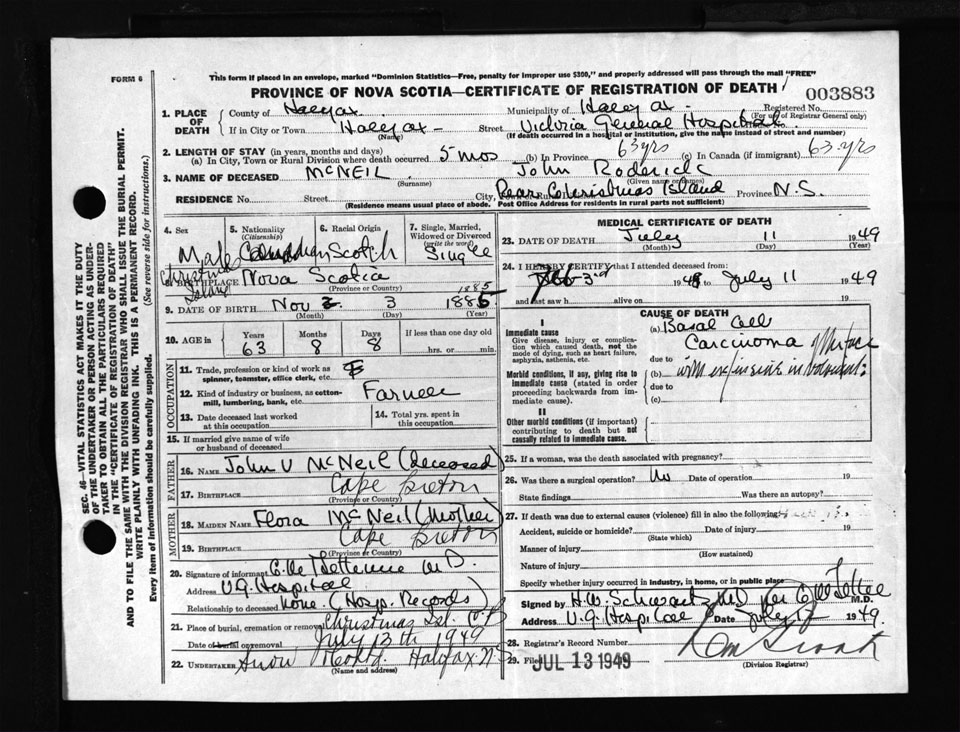 FORM 6
This form if placed in an envelope, marked "Dominion Statistics—Free, penalty for improper use $300," and properly addressed will pass through the mail "FREE"
PROVINCE OF NOVA SCOTIA—CERTIFICATE OF REGISTRATION OF DEATH
003883
1. PLACE OF DEATH
County of Halyax
Municipality of Halyax
Registered No.
(For use of Registrar General only)
If in City or Town Halyax
(Name)
Street Victoria General Hospital
(If death occurred in a hospital or institution, give the name instead of street and number)
2. LENGTH OF STAY (in years, months and days)
(a) In City, Town or Rural Division where death occurred 5 mos (b) In Province 63 yrs (c) In Canada (if immigrant) 63 yrs
3. NAME OF DECEASED McNEIL John Roderick
(Surname) (Given name or names)
RESIDENCE No. Street City, Town or Rural Rear Christmas Island Province N.S.
(Residence means usual place of abode. Post Office Address for residents in rural parts not sufficient)
4. Sex Male
5. Nationality (Citizenship) Canadian
6. Racial Origin Scotch
7. Single, Married, Widowed or Divorced (write the word) Single
8. BIRTHPLACE Christmas Island Nova Scotia
(Province or Country)
9. DATE OF BIRTH Nov 3 1885
1885
(Month) (Day) (Year)
10. AGE in Years 63 Months 8 Days 8 If less than one day old hrs. or min.
OCCUPATION
11. Trade, profession or kind of work as spinner, teamster, office clerk, etc.
12. Kind of industry or business, as cotton-mill, lumbering, bank, etc. Farmer
13. Date deceased last worked at this occupation
14. Total yrs. spent in this occupation
15. If married give name of wife or husband of deceased
FATHER
16. NAME John V McNeil (deceased)
17. BIRTHPLACE Cape Breton
(Province or Country)
MOTHER
18. MAIDEN NAME Flora McNeil (Mother)
19. BIRTHPLACE Cape Breton
(Province or Country)
20. Signature of informant M D.
Address V.G. Hospital
Relationship to deceased None. (Hosp. Records)
21. Place of burial, cremation or removal Christmas Isl. C.B
Date of burial or removal July 13th 1949
22. UNDERTAKER Snow Halifax NS
(Name and address)
MEDICAL CERTIFICATE OF DEATH
23. DATE OF DEATH July 11 1949
(Month) (Day) (Year)
24. I HEREBY CERTIFY that I attended deceased from:
Feb 3rd 1948 to July 11 1949
and last saw h alive on 19
CAUSE OF DEATH
I
Immediate cause
Give disease, injury or complication which caused death, not the mode of dying, such as heart failure, asphyxia, asthenia, etc.
(a) Basal Cell Carcinoma of the face
due to
Morbid conditions, if any, giving rise to immediate cause (stated in order proceeding backwards from immediate cause).
(b) with extensive involvement
due to
(c)
II
Other morbid conditions (if important) contributing to death but not causally related to immediate cause.
25. If a woman, was the death associated with pregnancy?
26. Was there a surgical operation? No Date of operation 19
State findings Was there an autopsy?
27. If death was due to external causes (violence) fill in also the following
Accident, suicide or homicide? Date of injury 19
(State which)
Manner of injury
(How sustained)
Nature of injury
Specify whether injury occurred in industry, in home, or in public place
Signed by H.W. Schwartz MD M.D.
Address V.G. Hospital Date July 1949
28. Registrar's Record Number
29. Filed JUL 13 1949
(Division Registrar)
SEC. 46—VITAL STATISTICS ACT MAKES IT THE DUTY OF THE UNDERTAKER OR PERSON ACTING AS UNDERTAKER TO OBTAIN ALL THE PARTICULARS REQUIRED IN THE "CERTIFICATE OF REGISTRATION OF DEATH" AND TO FILE THE SAME WITH THE DIVISION REGISTRAR WHO SHALL ISSUE THE BURIAL PERMIT.
WRITE PLAINLY WITH UNFADING INK. THIS IS A PERMANENT RECORD.
Every item of information should be carefully supplied. (See reverse side for instructions.)